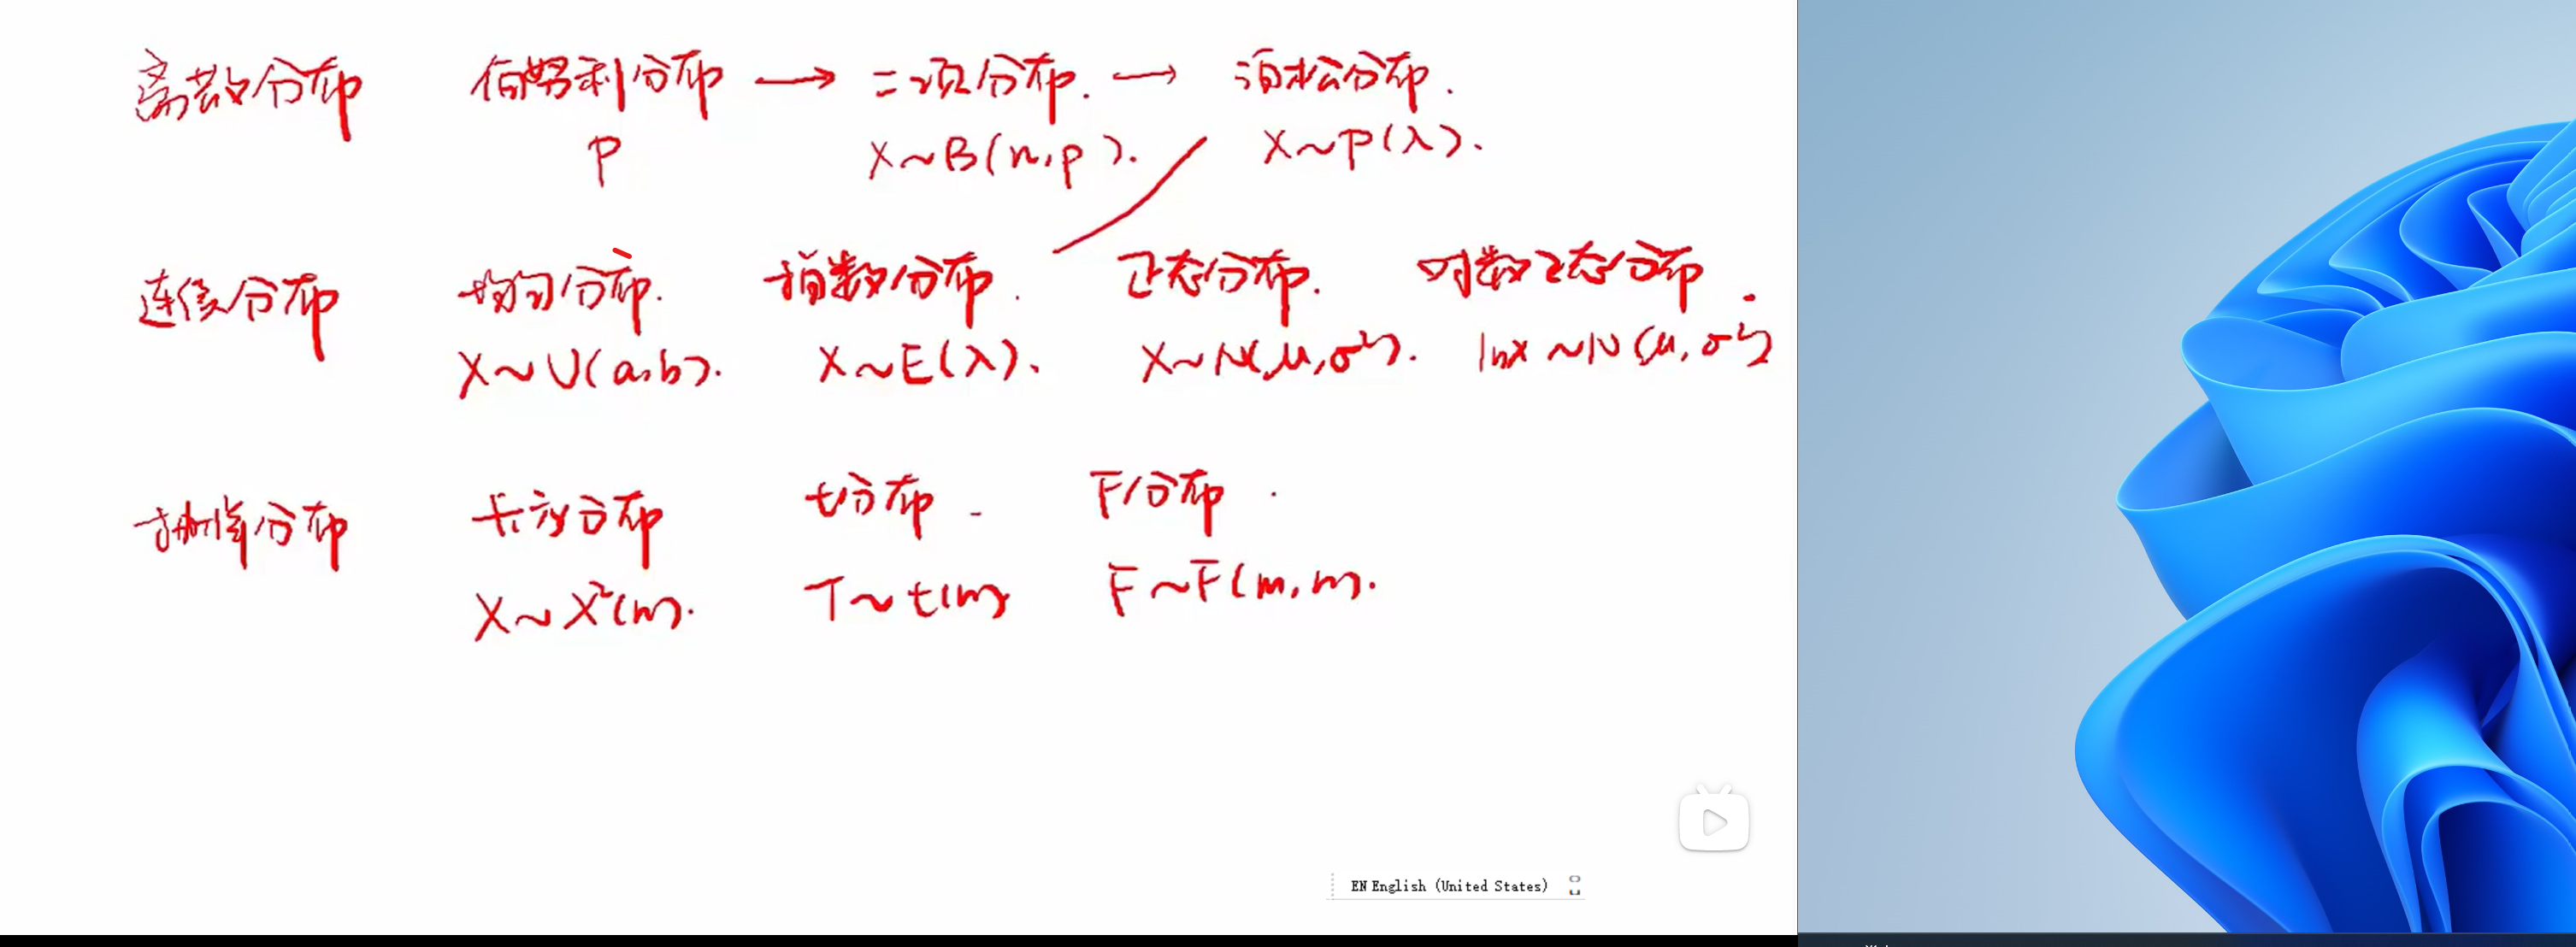 离散分布 伯努利分布 → 二项分布. → 泊松分布.
P X~B(n,p). X~P(λ).
连续分布 均匀分布. 指数分布. 正态分布. 对数正态分布.
X~U(a,b). X~E(λ). X~N(μ,σ²). lnx~N(μ,σ²)
抽样分布 卡方分布 t分布 F分布.
X~X²(n). T~t(n) F~F(m,n).
EN English (United States)